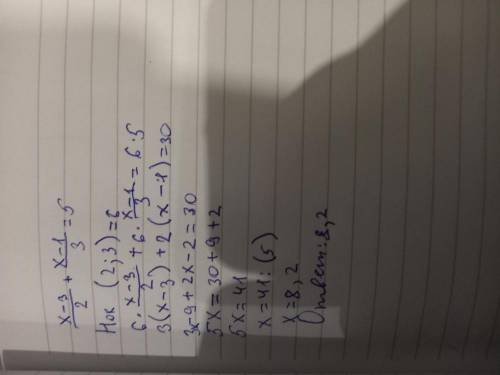 x-3/2 + x-1/3 = 5
Нок (2; 3) = 6
6 · x-3/2 + 6 · x-1/3 = 6 · 5
3(x-3) + 2(x-1) = 30
3x-9 + 2x-2 = 30
5x = 30+9+2
5x = 41
x = 41 : (5)
x = 8,2
Ответ: 8,2